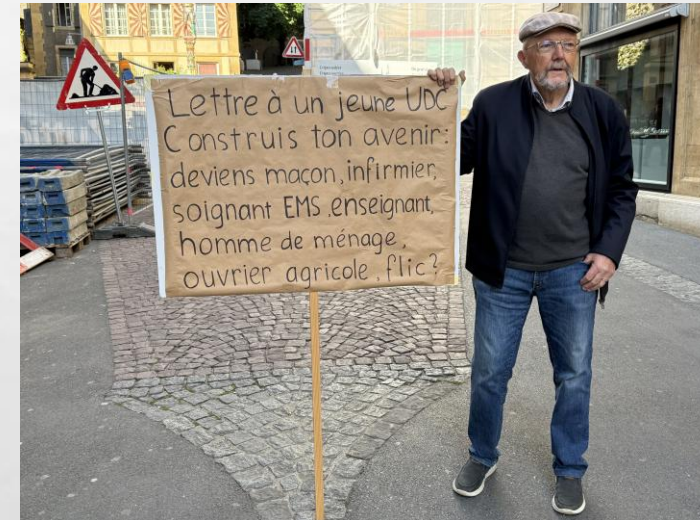 Lettre à un jeune UDC
Construis ton avenir:
deviens maçon, infirmier,
soignant EMS, enseignant,
homme de ménage,
ouvrier agricole, flic?